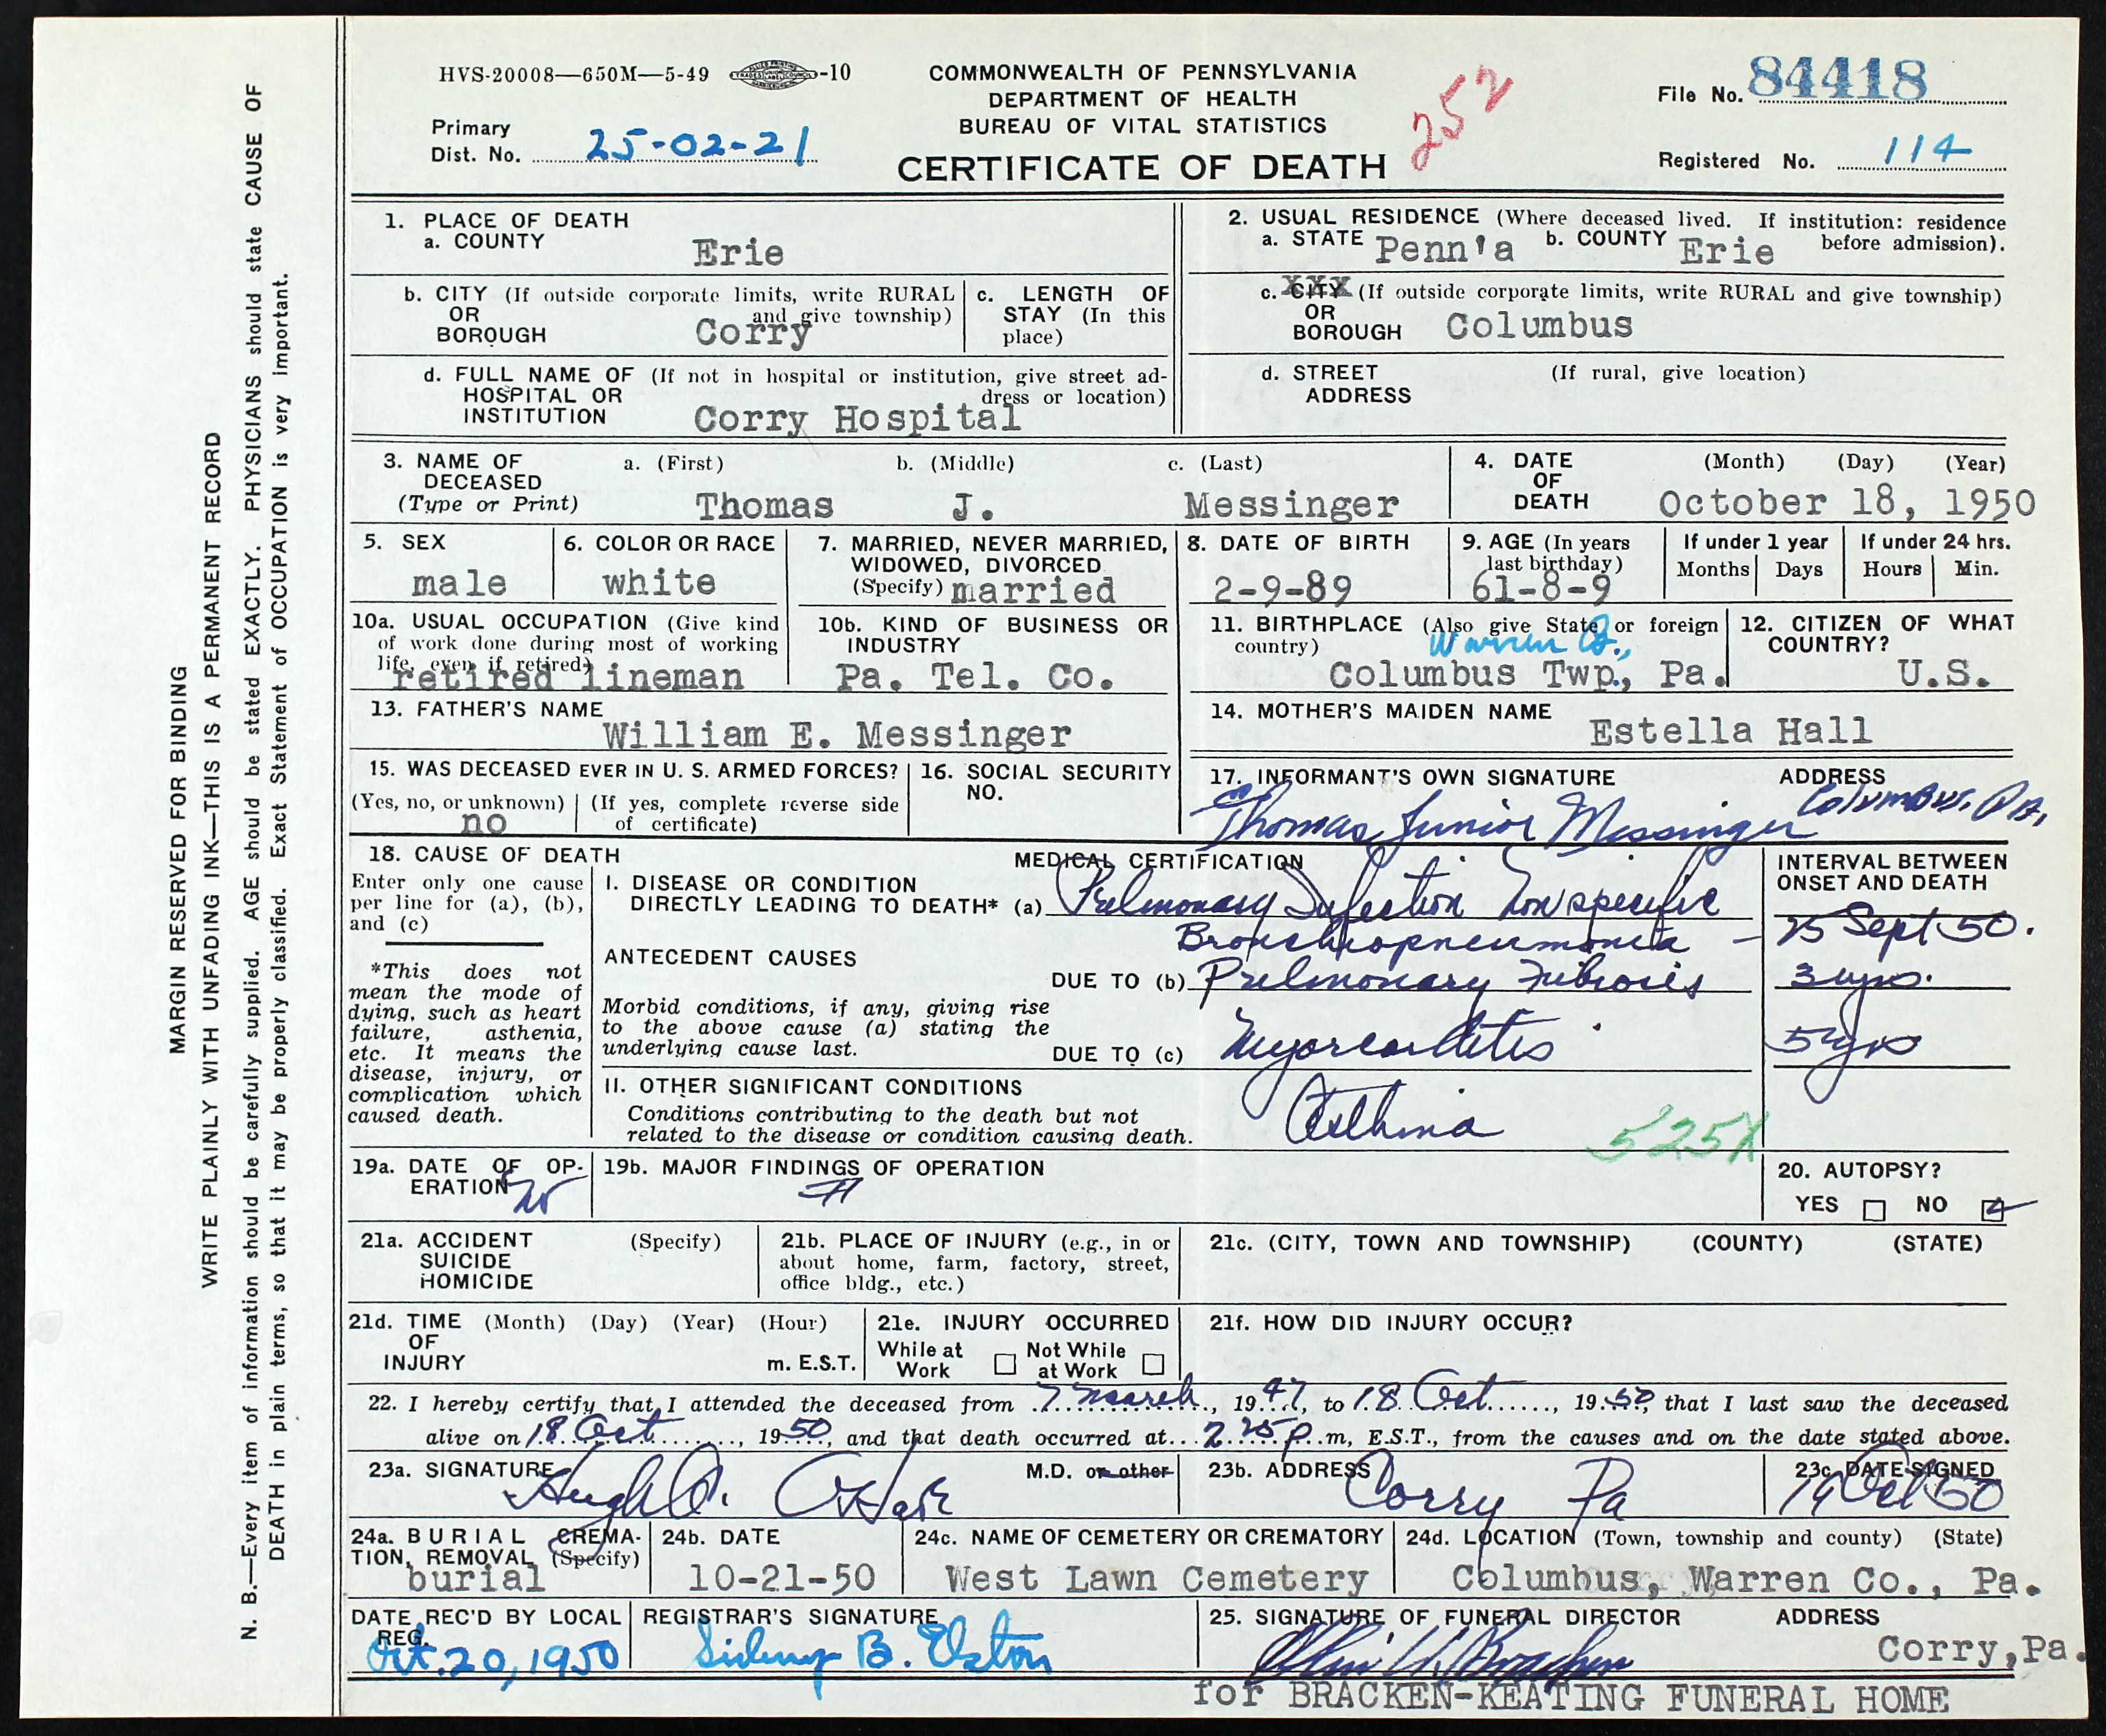 HVS-20008—650M—5-49 -10
COMMONWEALTH OF PENNSYLVANIA
DEPARTMENT OF HEALTH
BUREAU OF VITAL STATISTICS
CERTIFICATE OF DEATH
252
File No. 84418
Primary
Dist. No. 25-02-21
Registered No. 114
MARGIN RESERVED FOR BINDING
WRITE PLAINLY WITH UNFADING INK—THIS IS A PERMANENT RECORD
N. B.—Every item of information should be carefully supplied. AGE should be stated EXACTLY. PHYSICIANS should state CAUSE OF
DEATH in plain terms, so that it may be properly classified. Exact Statement of OCCUPATION is very important.
1. PLACE OF DEATH
a. COUNTY Erie
2. USUAL RESIDENCE (Where deceased lived. If institution: residence
before admission).
a. STATE Penn'a b. COUNTY Erie
b. CITY (If outside corporate limits, write RURAL
OR and give township)
BOROUGH Corry
c. LENGTH OF
STAY (In this
place)
c. CITY (If outside corporate limits, write RURAL and give township)
OR
BOROUGH Columbus
d. FULL NAME OF (If not in hospital or institution, give street ad-
HOSPITAL OR dress or location)
INSTITUTION Corry Hospital
d. STREET (If rural, give location)
ADDRESS
3. NAME OF a. (First) b. (Middle) c. (Last)
DECEASED
(Type or Print) Thomas J. Messinger
4. DATE (Month) (Day) (Year)
OF
DEATH October 18, 1950
5. SEX
male
6. COLOR OR RACE
white
7. MARRIED, NEVER MARRIED,
WIDOWED, DIVORCED
(Specify) married
8. DATE OF BIRTH
2-9-89
9. AGE (In years
last birthday)
61-8-9
If under 1 year
Months Days
If under 24 hrs.
Hours Min.
10a. USUAL OCCUPATION (Give kind
of work done during most of working
life, even if retired)
retired lineman
10b. KIND OF BUSINESS OR
INDUSTRY
Pa. Tel. Co.
11. BIRTHPLACE (Also give State or foreign
country) Warren Co.,
Columbus Twp., Pa.
12. CITIZEN OF WHAT
COUNTRY?
U.S.
13. FATHER'S NAME
William E. Messinger
14. MOTHER'S MAIDEN NAME
Estella Hall
15. WAS DECEASED EVER IN U. S. ARMED FORCES?
(Yes, no, or unknown) (If yes, complete reverse side
no of certificate)
16. SOCIAL SECURITY
NO.
17. INFORMANT'S OWN SIGNATURE ADDRESS
Thomas Junior Messinger Columbus, Pa.
18. CAUSE OF DEATH
Enter only one cause
per line for (a), (b),
and (c)
*This does not
mean the mode of
dying, such as heart
failure, asthenia,
etc. It means the
disease, injury, or
complication which
caused death.
MEDICAL CERTIFICATION
I. DISEASE OR CONDITION
DIRECTLY LEADING TO DEATH* (a) Pulmonary Infection Nonspecific
Bronchopneumonia -
ANTECEDENT CAUSES
DUE TO (b) Pulmonary Fibrosis
Morbid conditions, if any, giving rise
to the above cause (a) stating the
underlying cause last.
DUE TO (c) Myocarditis
II. OTHER SIGNIFICANT CONDITIONS
Conditions contributing to the death but not
related to the disease or condition causing death.
Asthma
525X
INTERVAL BETWEEN
ONSET AND DEATH
25 Sept 50.
3 yrs.
5 yrs
19a. DATE OF OP-
ERATION
19b. MAJOR FINDINGS OF OPERATION
20. AUTOPSY?
YES NO
21a. ACCIDENT (Specify)
SUICIDE
HOMICIDE
21b. PLACE OF INJURY (e.g., in or
about home, farm, factory, street,
office bldg., etc.)
21c. (CITY, TOWN AND TOWNSHIP) (COUNTY) (STATE)
21d. TIME (Month) (Day) (Year) (Hour)
OF
INJURY m. E.S.T.
21e. INJURY OCCURRED
While at Not While
Work at Work
21f. HOW DID INJURY OCCUR?
22. I hereby certify that I attended the deceased from 7 March, 1947, to 18 Oct, 1950, that I last saw the deceased
alive on 18 Oct, 1950, and that death occurred at 2 25 P.m, E.S.T., from the causes and on the date stated above.
23a. SIGNATURE M.D. or other
Hugh
23b. ADDRESS
Corry Pa
23c. DATE SIGNED
19 Oct 50
24a. BURIAL CREMA-
TION, REMOVAL (Specify)
burial
24b. DATE
10-21-50
24c. NAME OF CEMETERY OR CREMATORY
West Lawn Cemetery
24d. LOCATION (Town, township and county) (State)
Columbus, Warren Co., Pa.
DATE REC'D BY LOCAL
REG.
Oct. 20, 1950
REGISTRAR'S SIGNATURE
Sidney B. Elston
25. SIGNATURE OF FUNERAL DIRECTOR ADDRESS
Corry, Pa.
for BRACKEN-KEATING FUNERAL HOME